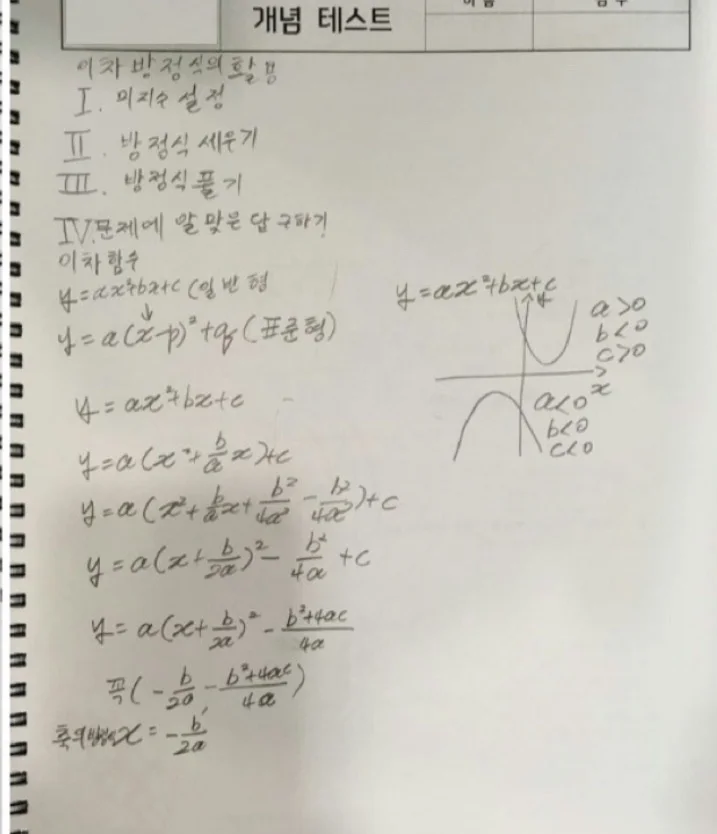 개념 테스트
이차방정식의 활용
I. 미지수 설정
II. 방정식 세우기
III. 방정식 풀기
IV. 문제에 알맞은 답 구하기
이차함수
y=ax²+bx+c (일반형
↓
y=a(x-p)²+q (표준형)
y=ax²+bx+c
y=a(x²+b/a x)+c
y=a(x²+b/a x+b²/4a²-b²/4a²)+c
y=a(x+b/2a)²-b²/4a+c
y=a(x+b/2a)²-b²+4ac/4a
꼭(-b/2a, -b²+4ac/4a)
축의 방정식 x=-b/2a
y=ax²+bx+c
y
a>0
b<0
c>0
x
a<0
b<0
c<0